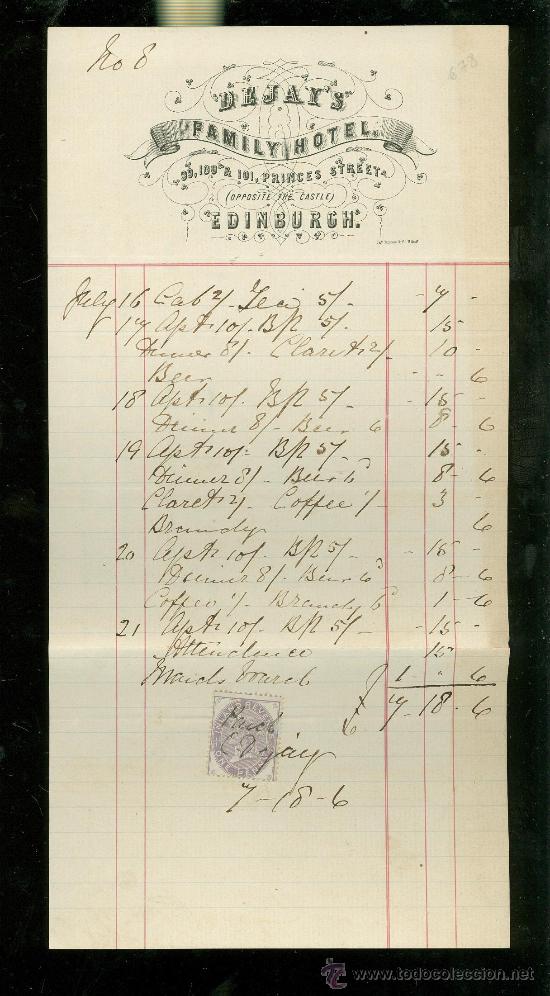 No 8
678
DEJAY'S
FAMILY HOTEL,
99, 100 & 101, PRINCES STREET
(OPPOSITE THE CASTLE)
EDINBURGH.
July 16 Cab 2/- Tea 5/- - 7 -
17 Apts 10/- B/k 5/- - 15 -
Dinner 8/- Claret 2/- 10 -
Beer - - 6
18 Apts 10/- B/k 5/- - 15 -
Dinner 8/- Beer 6 8 - 6
19 Apts 10/- B/k 5/- - 15 -
Dinner 8/- Beer 6 8 - 6
Claret 2/- Coffee 1/- 3 -
Brandy 6
20 Apts 10/- B/k 5/- - 15 -
Dinner 8/- Beer 6 8 - 6
Coffee 1/- Brandy 6 1 - 6
21 Apts 10/- B/k 5/- - 15 -
Attendance 15
Maids board 1 " 6
£ 7 - 18 - 6
INLAND REVENUE
Paid
ONE PENNY
7-18-6
www.todocoleccion.net